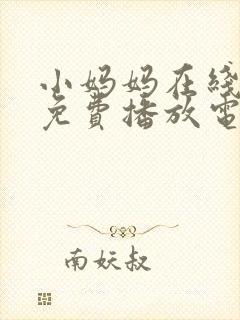 小妈妈在线
免費播放電
南妖叔